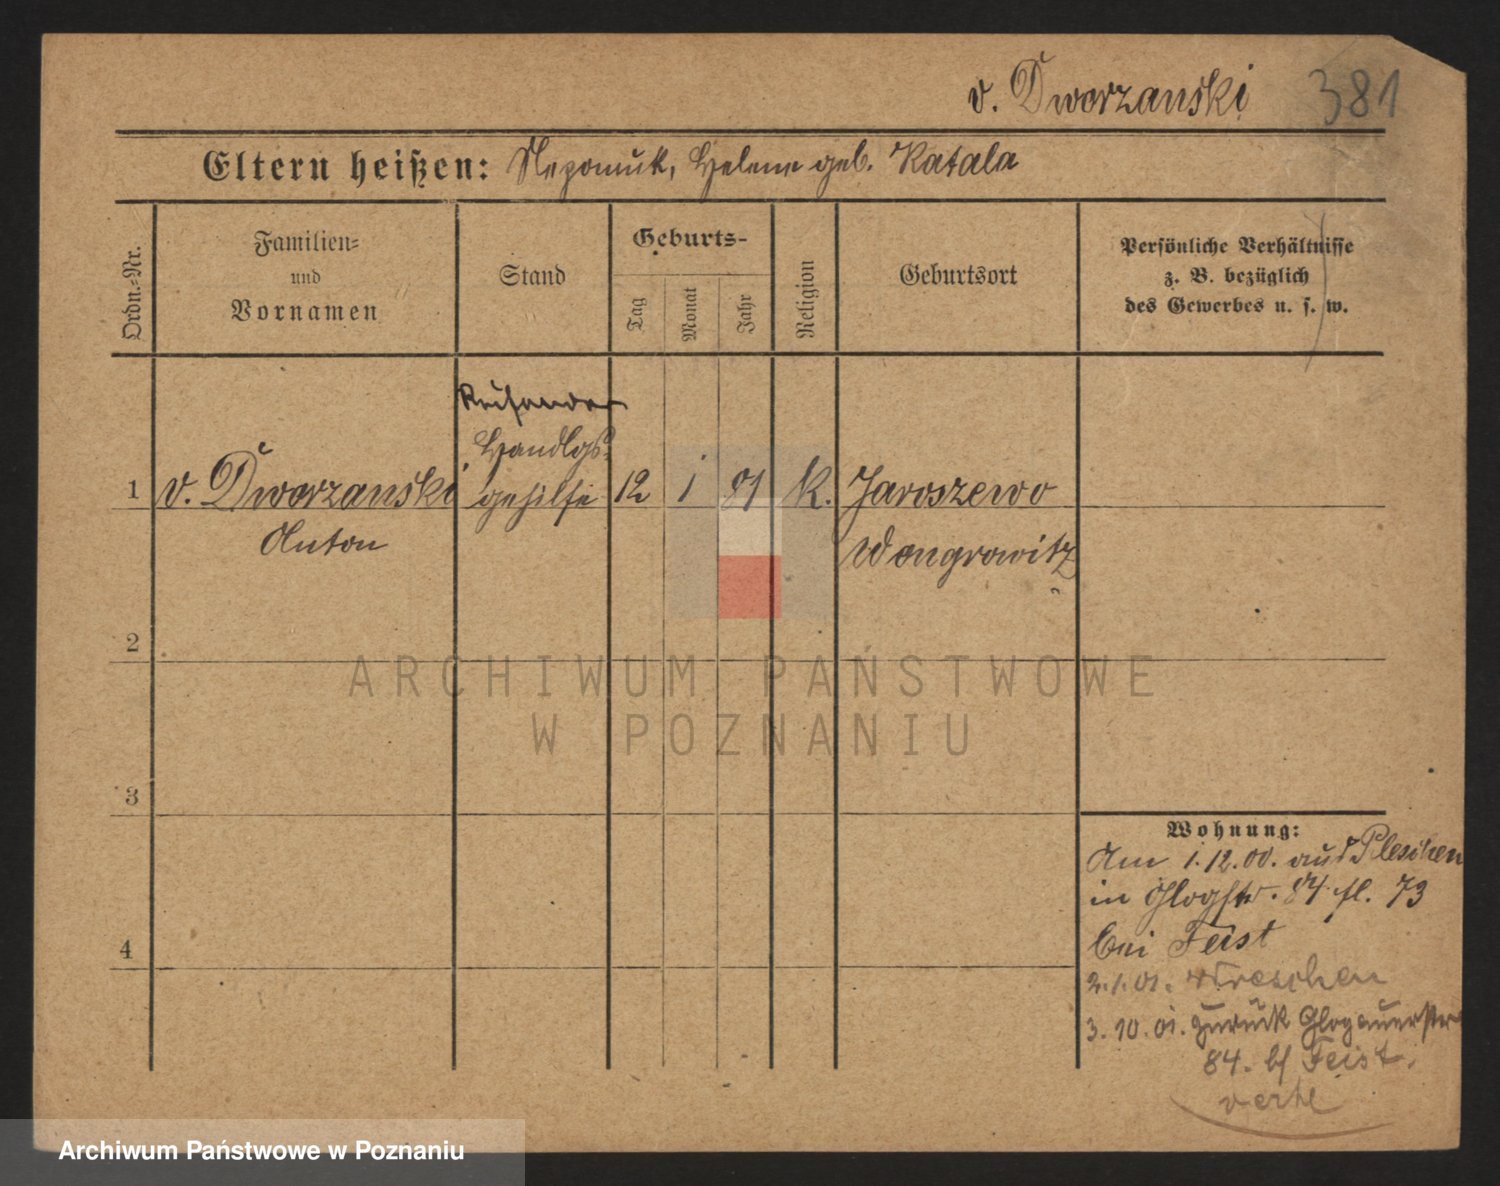 v. Dworzanski 381
Eltern heißen: Nepomuk, Helene geb. Ratala
Ordn.-Nr.
Familien-
und
Vornamen
Stand
Geburts-
Tag
Monat
Jahr
Religion
Geburtsort
Persönliche Verhältnisse
z. B. bezüglich
des Gewerbes u. s. w.
Reisender
Handlgs-
1 v. Dworzanski gehilfe 12 1 81 K. Jaroszewo
Anton Wongrowitz
2
3
4
Wohnung:
Am 1.12.00. aus Pleschen
in Glogstr. 84. fl. 73
bei Feist
2.1.01. Wreschen
3.10.01. zurück Glogauerstr
84. b/ Feist.
verte
ARCHIWUM PAŃSTWOWE
W POZNANIU
Archiwum Państwowe w Poznaniu